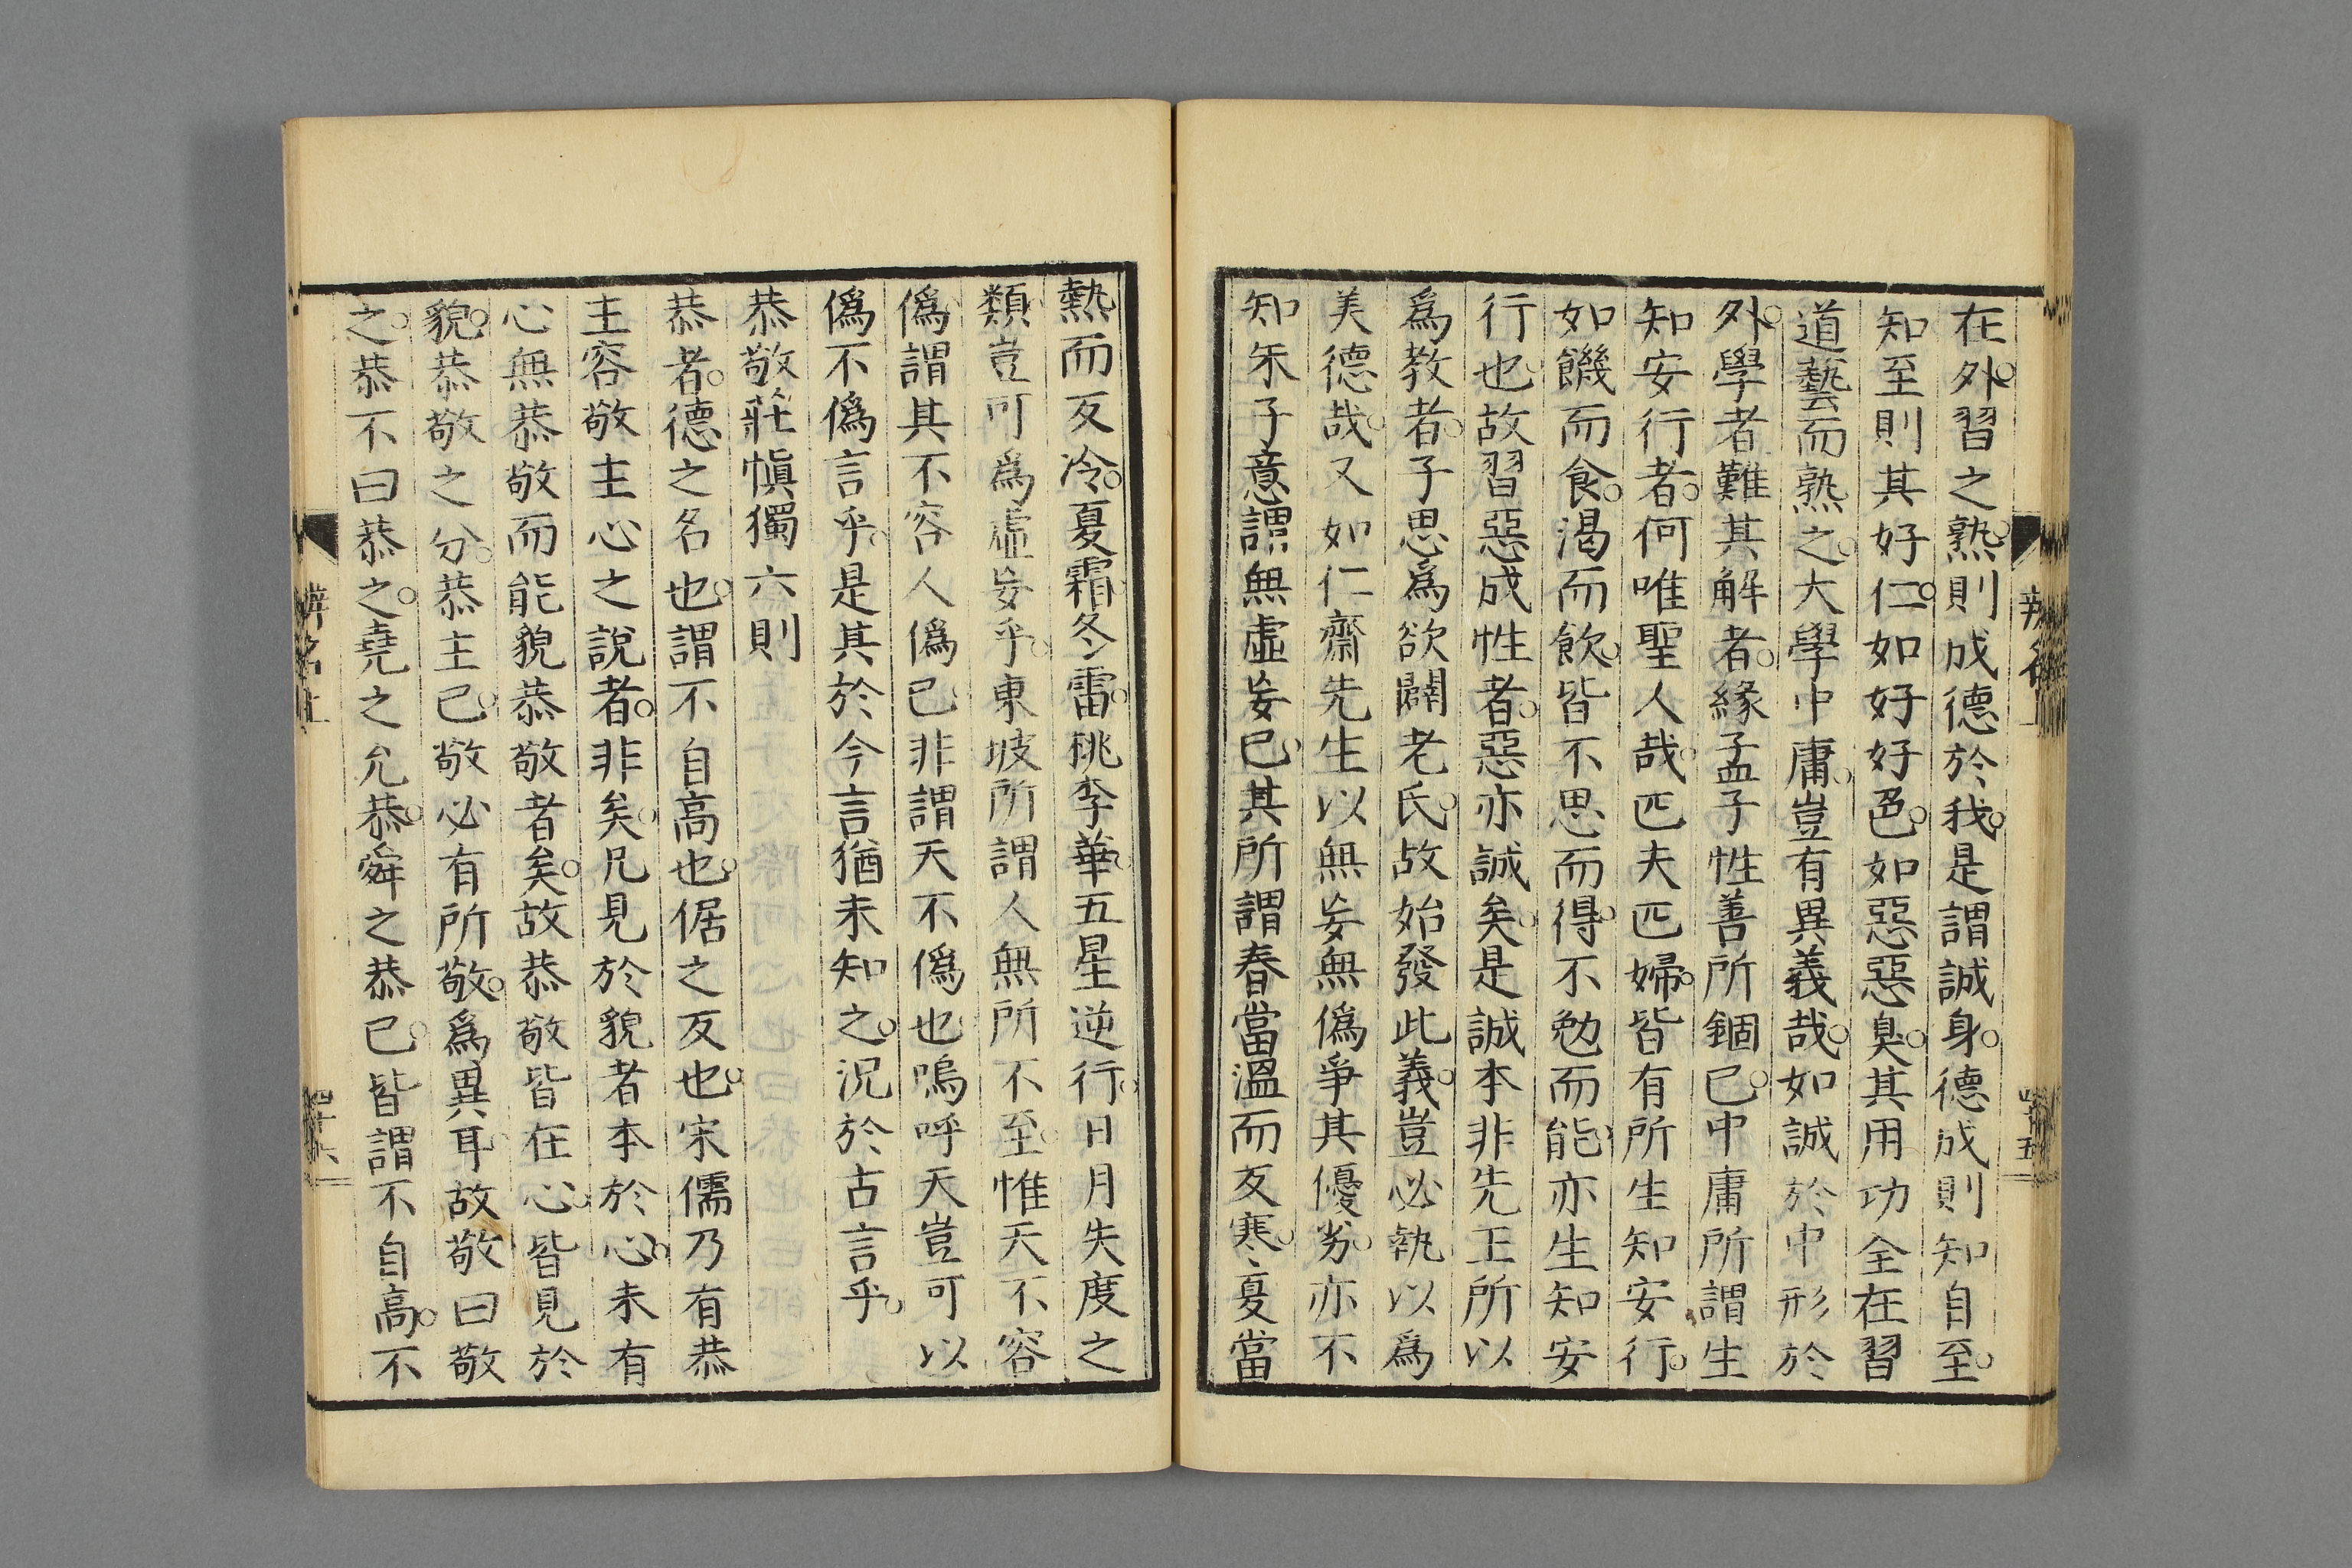 在外習之熟則成德於我是謂誠身德成則知自至
知至則其好仁如好好色如惡惡臭其用功全在習
道藝而熟之大學中庸豈有異義哉如誠於中形於
外學者難其解者緣孟子性善所錮已中庸所謂生
知安行者何唯聖人哉匹夫匹婦皆有所生知安行
如饑而食渴而飲皆不思而得不勉而能亦生知安
行也故習惡成性者惡亦誠矣是誠本非先王所以
爲教者子思爲欲闢老氏故始發此義豈必執以爲
美德哉又如仁齋先生以無妄無僞爭其優劣亦不
知朱子意謂無虛妄已其所謂春當溫而反寒夏當
辨名上
四十五
熱而反冷夏霜冬雷桃李華五星逆行日月失度之
類豈可爲虛妄乎東坡所謂人無所不至惟天不容
僞謂其不容人僞已非謂天不僞也嗚呼天豈可以
僞不僞言乎是其於今言猶未知之況於古言乎
恭敬莊愼獨六則
恭者德之名也謂不自高也倨之反也宋儒乃有恭
主容敬主心之說者非矣凡見於貌者本於心未有
心無恭敬而能貌恭敬者矣故恭敬皆在心皆見於
貌恭敬之分恭主已敬必有所敬爲異耳故敬曰敬
之恭不曰恭之堯之允恭舜之恭已皆謂不自高不
辨名上
四十六